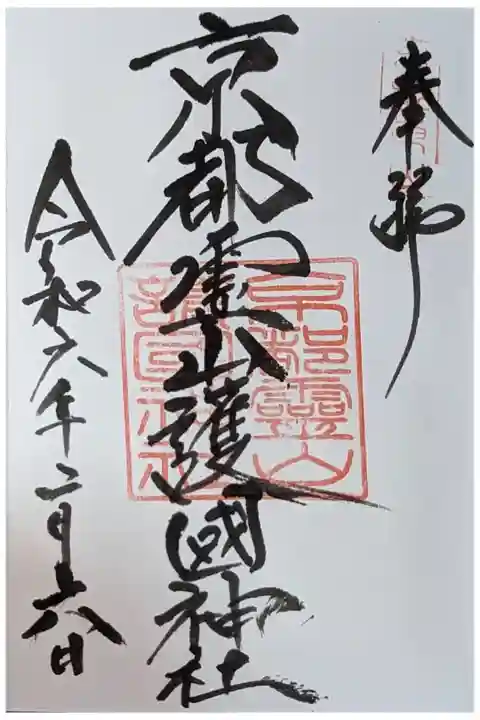 奉拝
京都霊山護國神社
令和六年二月十八日
京都靈山
護國神社